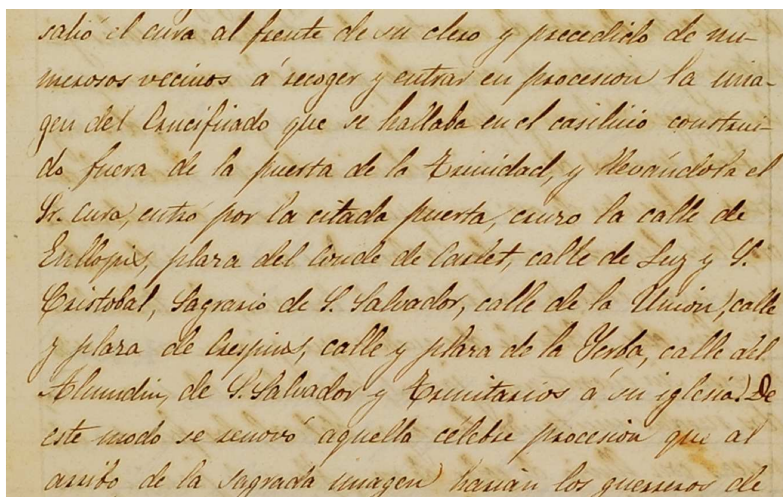 salió el cura al frente de su clero y precedido de nu-
merosos vecinos á recoger y entrar en procesion la ima-
gen del Crucificado que se hallaba en el casilicio construi-
do fuera de la puerta de la Trinidad, y llevándola el
Sr. Cura, entró por la citada puerta, cruzo la calle de
Enllopis, plaza del Conde de Carlet, calle de Luz y S.
Cristobal, Sagrario de S. Salvador, calle de la Union, calle
y plaza de Crespins, calle y plaza de la Yerba, calle del
Almudin, de S. Salvador y Trinitarios á su iglesia. De
este modo se renovó aquella célebre procesion que al
arribo de la sagrada imagen harian los guerreros de